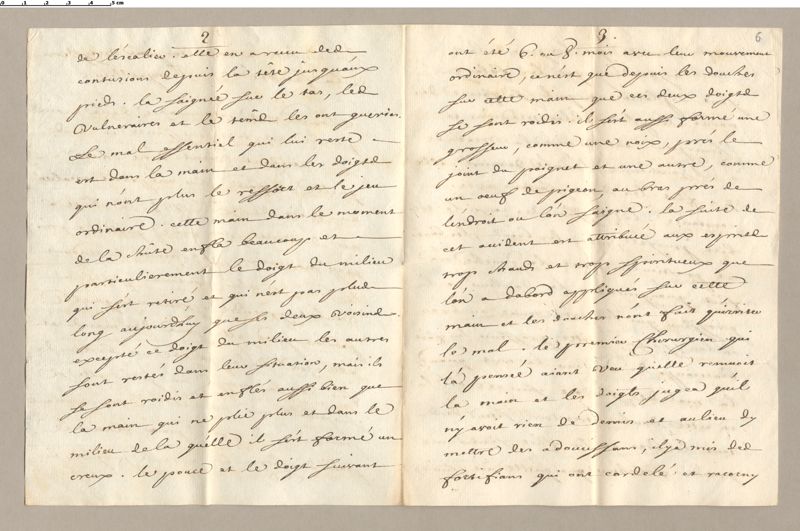 0 1 2 3 4 5 cm
2
de l'escalier. elle en a receu des
contusions depuis la tête jusqu'aux
pieds. la saignée sur le tas, les
Vulneraires et le tems les ont gueries.
Le mal essentiel qui lui reste
est dans la main et dans les doigts
qui n'ont plus le ressort et le jeu
ordinaire. cette main dans le moment
de la chûte enfla beaucoup et
particulierement le doigt du milieu
qui s'est retiré et qui n'est pas plus
long aujourdhuy que ses deux Voisins.
excepté ce doigt du milieu les autres
sont restés dans leur situation, mais ils
se sont roidis et enflés aussi bien que
la main qui ne plie plus et dans le
milieu de la quelle il s'est formé un
creux. le pouce et le doigt suivant
3.
6
ont été 6. ou 8. mois avec leur mouvement
ordinaire, ce n'est que depuis les douches
sur cette main que ces deux doigts
se sont roidis. il s'est aussi formé une
grosseur, comme une noix, prés le
joint du poignet et une autre, comme
un oeuf de pigeon au bras prés de
lendroit ou lón saigne. la suite de
cet accident est attribuée aux esprits
trop chauds et trop spiritueux que
lón a dabord appliqués sur cette
main et les douches n'ont fait qu'irriter
le mal. le premier Chirurgien qui
l'a pensée aiant veu quelle remuoit
la main et les doigts jugea qu'il
n'y avoit rien de demis et au lieu d'y
mettre des adoucissans, il y a mis des
fortifians qui ont cordelé et racorny